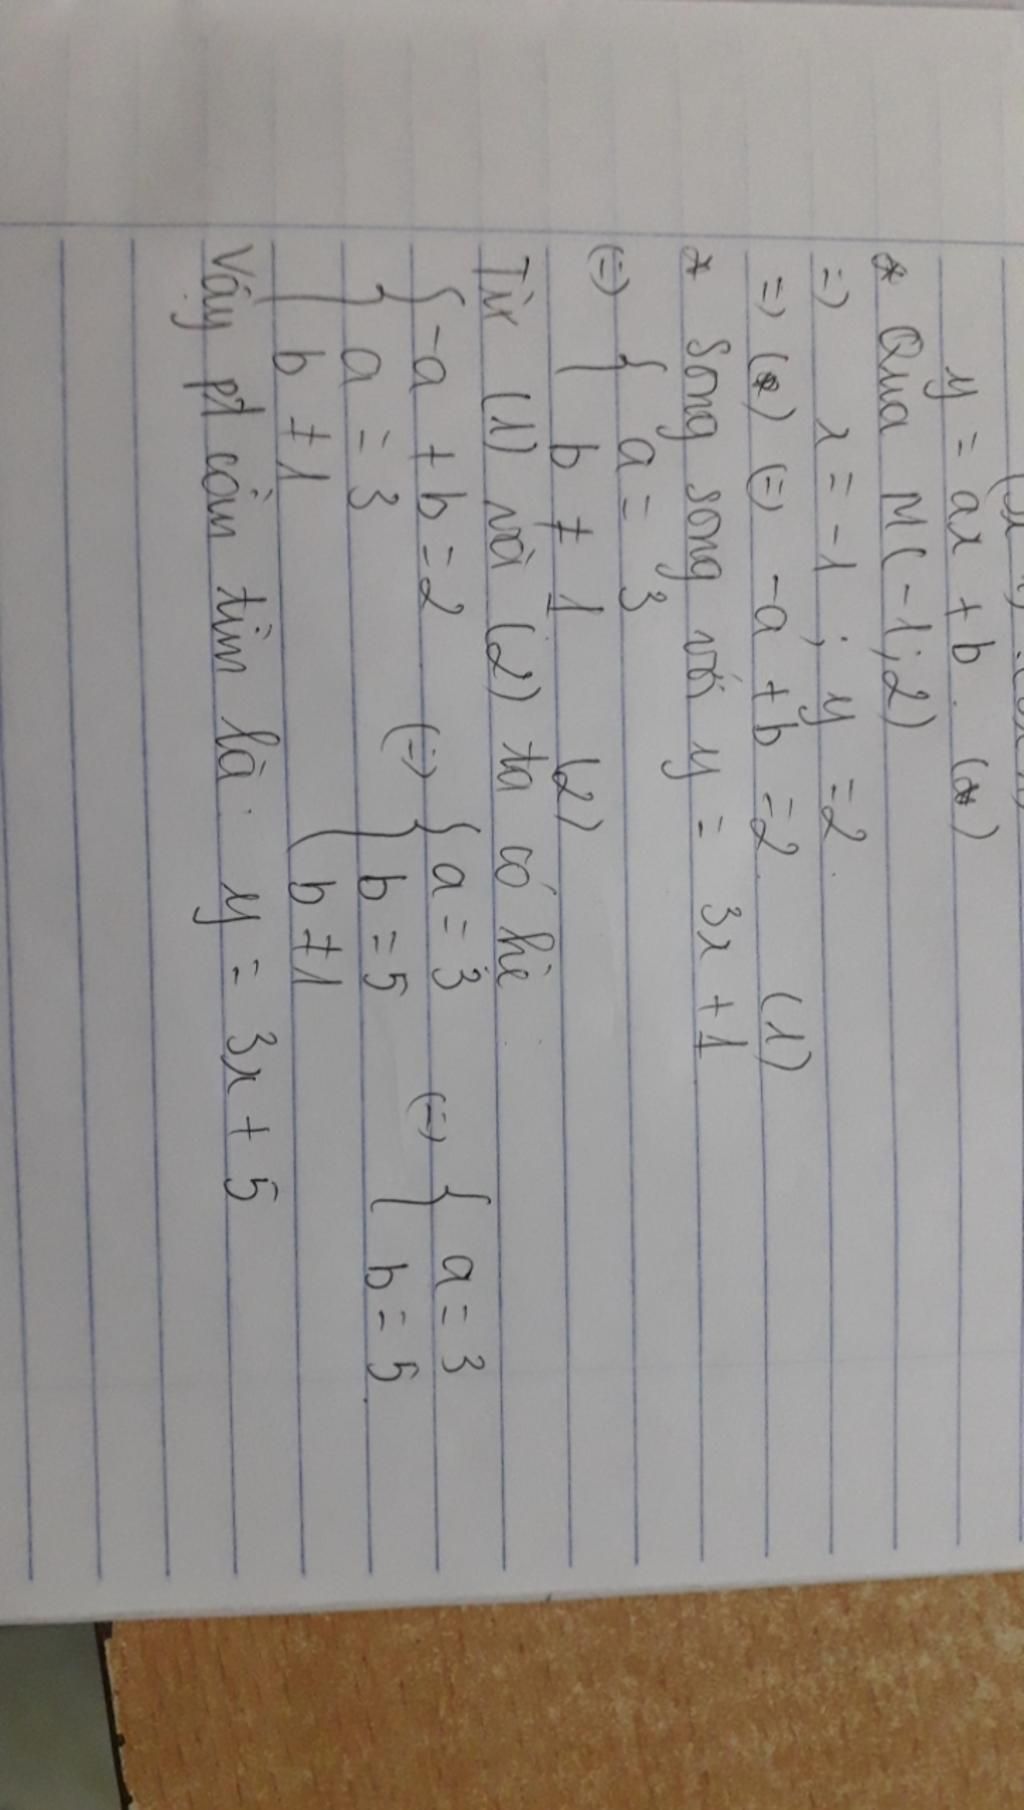 y = ax + b. (*)
* Qua M(-1;2)
=> x = -1 ; y = 2.
=> (*) (=) -a + b = 2 (1)
* Song song với y = 3x + 1
(=) { a = 3
{ b ≠ 1 (2)
Từ (1) và (2) ta có hệ
{ -a + b = 2 (=) { a = 3 (=) { a = 3
{ a = 3 { b = 5 { b = 5
{ b ≠ 1 { b ≠ 1
Vậy pt cần tìm là: y = 3x + 5